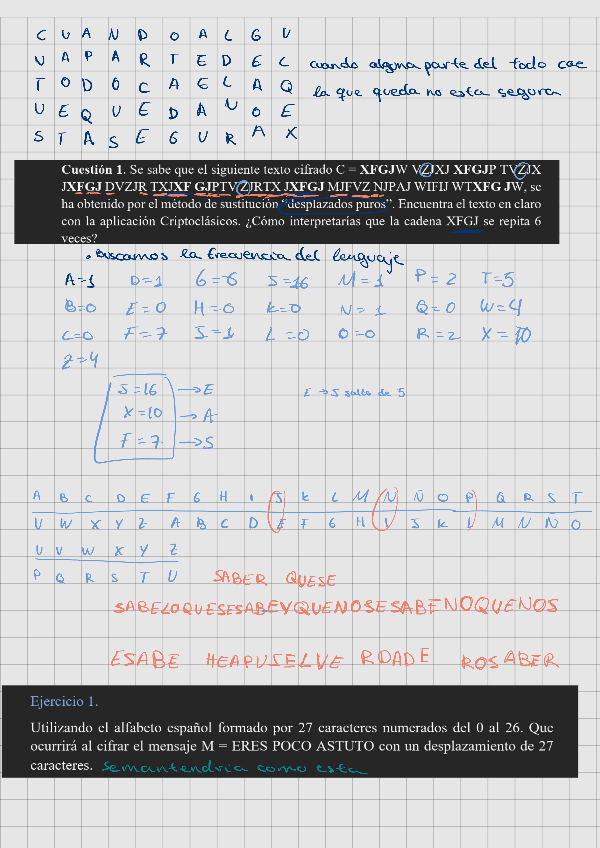 C U A N D O A L G U
N A P A R T E D E L
T O D O C A E L A Q
U E Q U E D A N O E
S T A S E G U R A X
cuando alguna parte del todo cae
la que queda no esta segura
Cuestión 1. Se sabe que el siguiente texto cifrado C = XFGJW VZJXJ XFGJP TVZJX
JXFGJ DVZJR TXJXF GJPTV ZJRTX JXFGJ MJFVZ NJPAJ WIFIJ WTXFG JW, se
ha obtenido por el método de sustitución "desplazados puros". Encuentra el texto en claro
con la aplicación Criptoclásicos. ¿Cómo interpretarías que la cadena XFGJ se repita 6
veces?
• Buscamos la frecuencia del lenguaje
A=1 D=1 G=6 J=16 M=1 P=2 T=5
B=0 E=0 H=0 K=0 N=1 Q=0 W=4
C=0 F=7 I=1 L=0 O=0 R=2 X=10
Z=4
J=16 → E E → J salto de 5
X=10 → A
F=7 → S
A B C D E F G H I J K L M N Ñ O P Q R S T
V W X Y Z A B C D E F G H I J K L M N Ñ O
U V W X Y Z
P Q R S T U
SABER QUESE
SABELOQUESESABEYQUENOSESABENOQUENOS
ESABE HEAPUSELVE RDADE ROSABER
Ejercicio 1.
Utilizando el alfabeto español formado por 27 caracteres numerados del 0 al 26. Que
ocurrirá al cifrar el mensaje M = ERES POCO ASTUTO con un desplazamiento de 27
caracteres. Se mantendria como esta